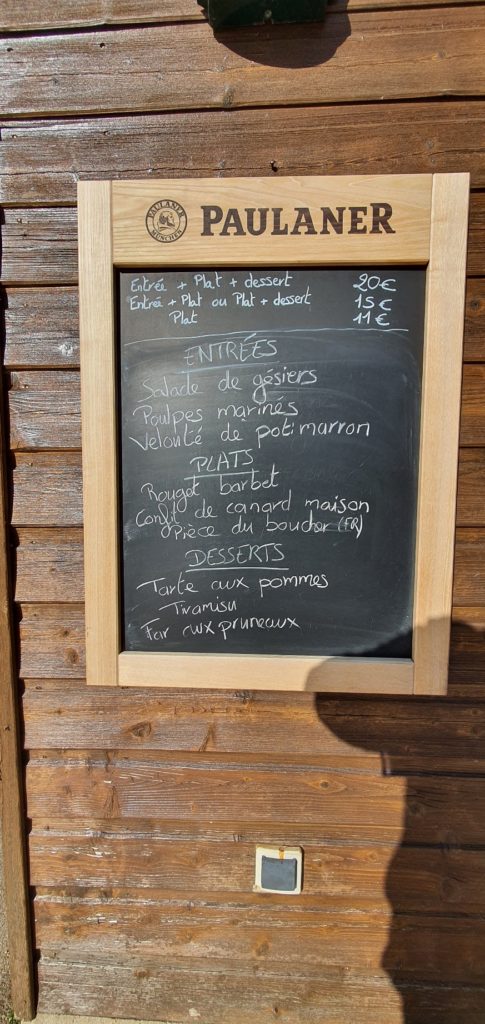 PAULANER
MÜNCHEN
PAULANER
Entrée + Plat + dessert 20€
Entrée + Plat ou Plat + dessert 15€
Plat 11€
ENTRÉES
Salade de gésiers
Poulpes marinés
Velouté de potimarron
PLATS
Rouget barbet
Confit de canard maison
Pièce du boucher (FR)
DESSERTS
Tarte aux pommes
Tiramisu
Far aux pruneaux